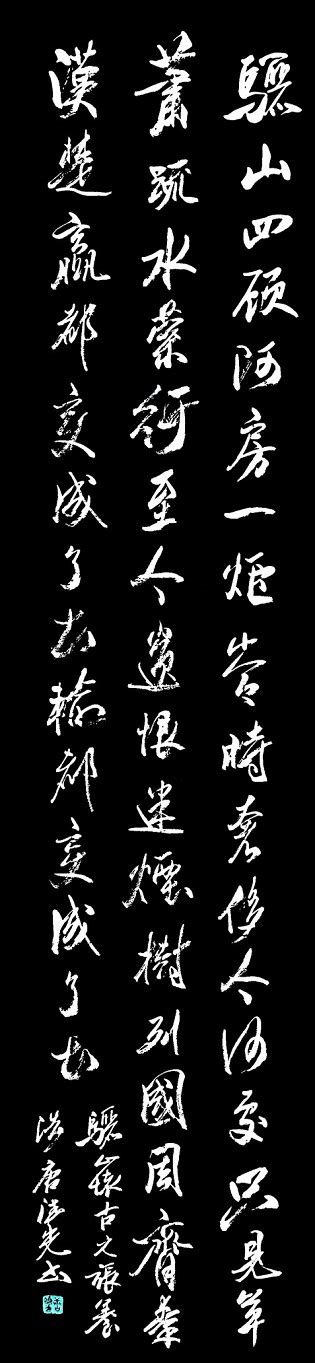 驪山四顾阿房一炬當時奢侈今何處只見草
蕭疏水縈紆至今遺恨迷煙樹列國周齊秦
漢楚贏都变成了土輸都变成了土
驪山懷古元張養
浩唐法先书